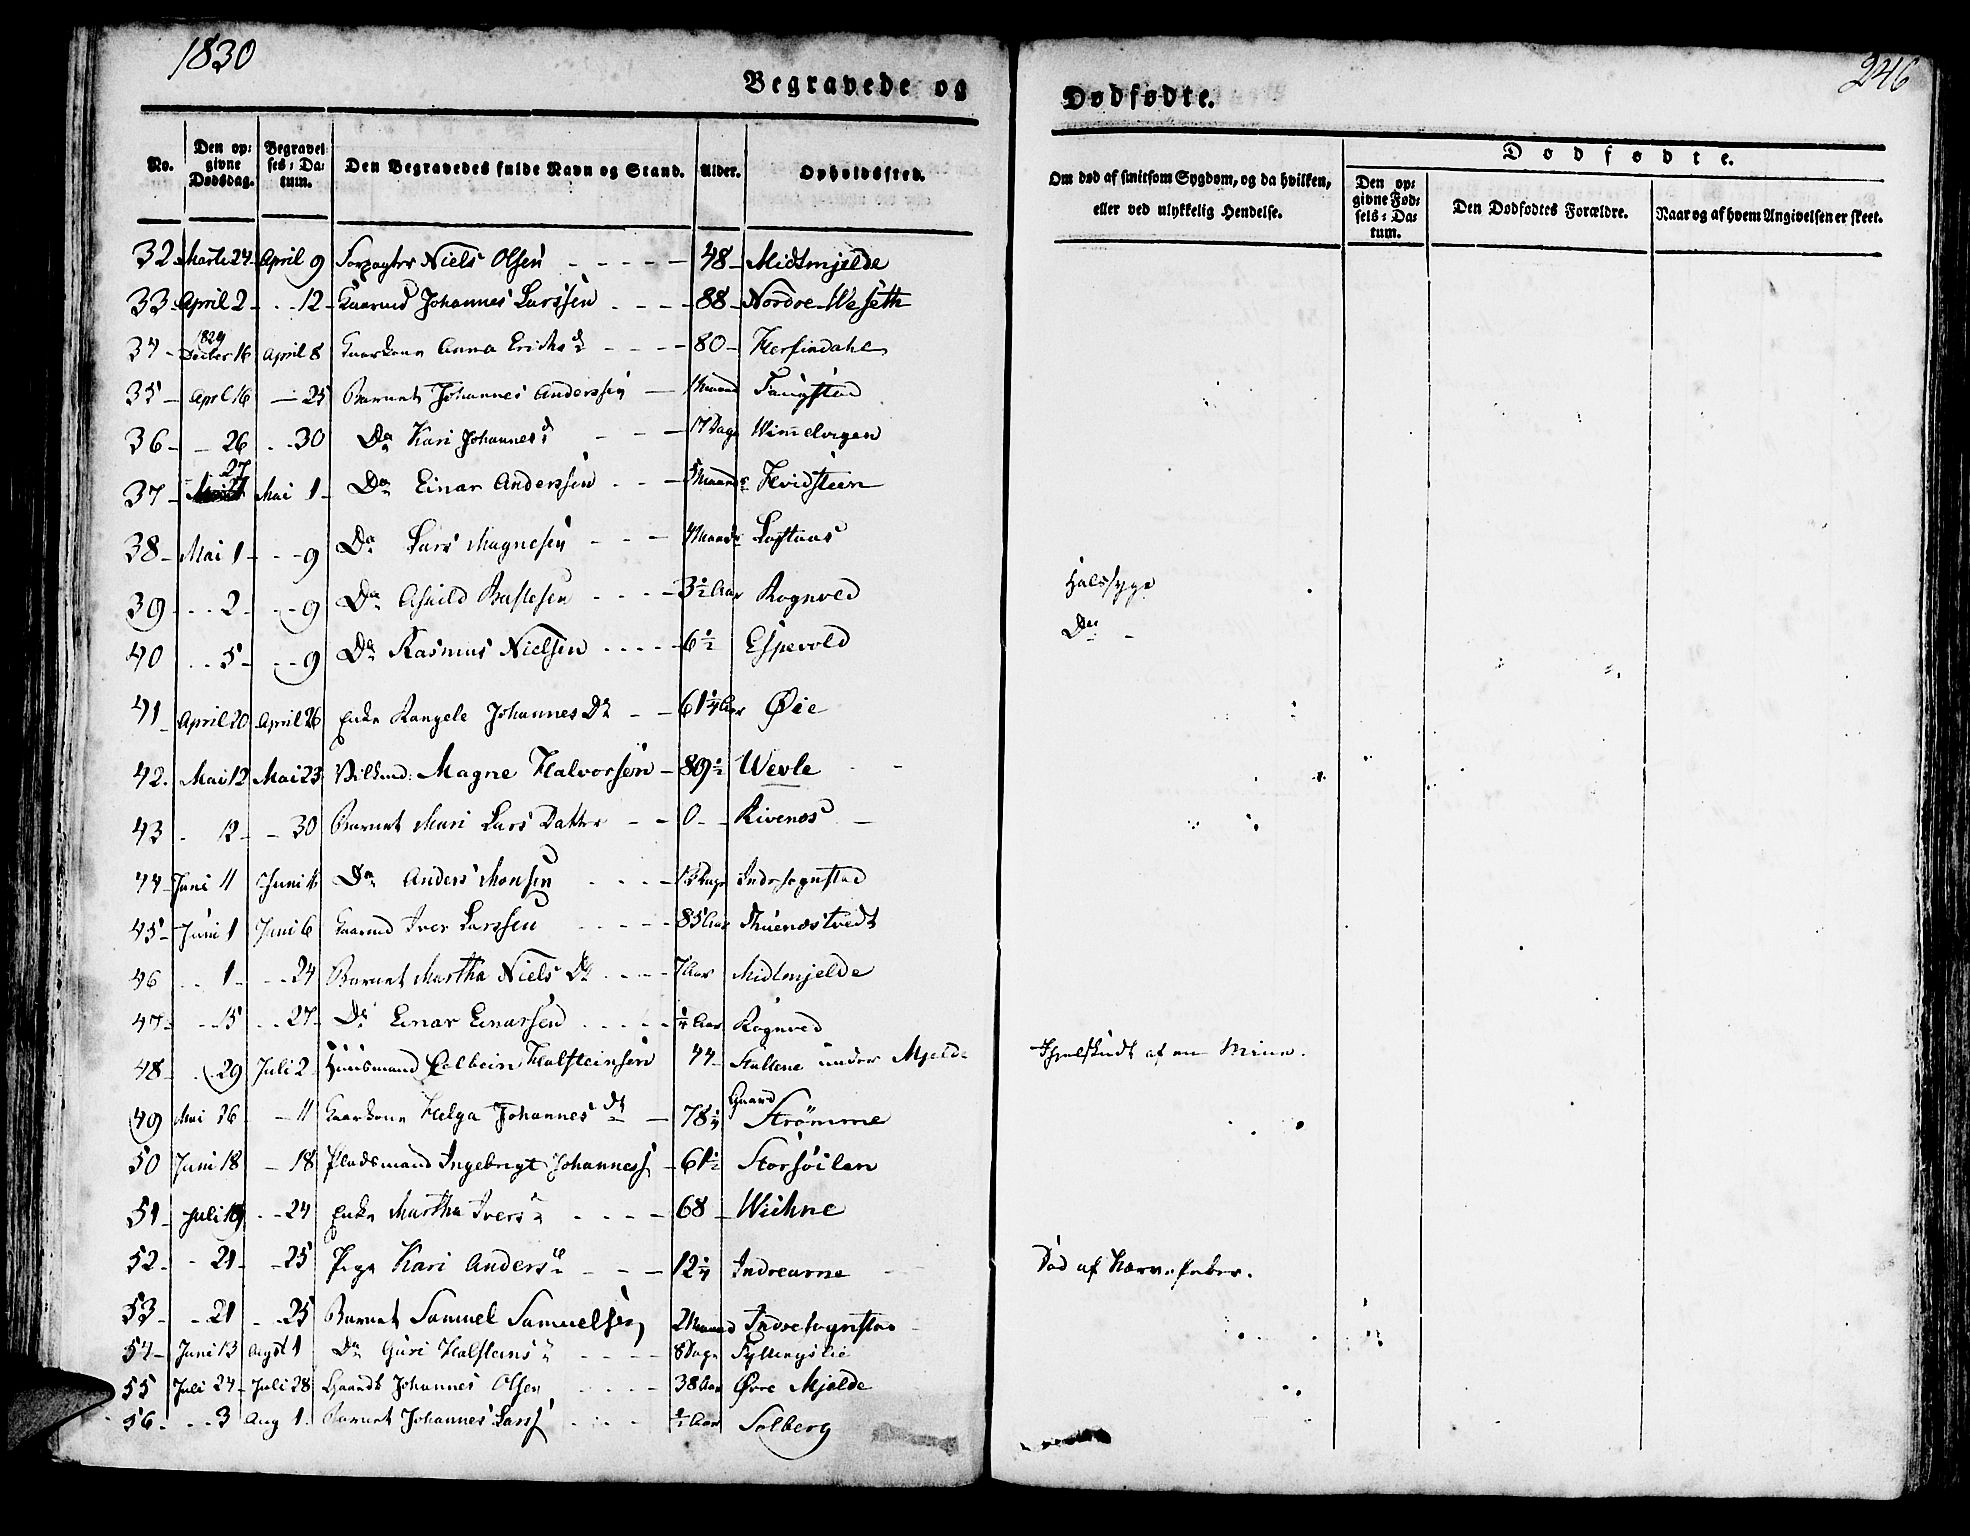 1830
246
Begravede og
Dødfødte.
No.
Den opgivne Dødsdag.
Begravelses-Datum.
Den Begravedes fulde Navn og Stand.
Alder.
Opholdssted.
Om død af smitsom Sygdom, og da hvilken, eller ved ulykkelig Hendelse.
Dødfødte.
Den opgivne Fødsels-Datum.
Den Dødfødtes Forældre.
Naar og af hvem Angivelsen er skeet.
32 Marts 24 April 9 Forpagter Niels Olsen 48 Midtmjelde
33 April 2 12 Gaardmd Johannes Larssen 88 Nordre Weseth
34 1829 Decber 16 April 8 Gaarkone Anna Erichsd 80 Herfindahl
35 Apr 16 25 Barnet Johannes Anderssen 1 Maaned Taugstad
36 26 30 Do Kari Johannesd 17 Dage Wimelvigen
37 27 Mai 1 Do Einar Anderssen Maaneder Hvidsteen
38 Mai 1 9 Do Lars Magnesen 4 Maander Loftaas
39 2 9 Do 3½ Aar Rognved Halssyge
40 5 9 Do Rasmus Nielsen 6½ Espevold Do
41 April 20 April 26 Enke Rangele Johannes Dr 61¼ Aar Øie
42 Mai 12 Mai 23 Magne Halvorsen 89½ Wevle
43 12 30 Barnet Mari Lars Datter 0 Rivenes
44 Juni 11 Juni Do Anders Monsen Dage Indrehognstad
45 Juni 1 Juni 6 Gaarmd Iver Larssen 85 Aar Thuenæstvedt
46 1 24 Barnet Martha Niels Dr 7 Aar Midtmjelde
47 15 27 Do Einar Einarsen ¼ Aar Rognved
48 29 Juli 2 Huusmand Colbein Halsteinsen 44 Stallene under Mjelde Ihjelskudt af en Mine.
49 Mai 26 11 Gaarkone Helga Johannes dr 78¼ Gaard Strömme
50 Juni 18 18 Pladsmand Ingebrigt Johanness 61½ Storsöilen
51 Juli 19 24 Enke Martha Ivers 68 Wichne
52 21 25 Pige Kari Anders 12¼ Indrearne Död af Nervefeber.
53 21 25 Barnet Samuel Samuelsen 2 Maaned Indrehognstad
54 Juni 13 Augst 1 Do Guri Halsteins 8 Dage Fyllingslie
55 Juli 24 Juli 28 Gaardm Johannes Olsen 38 Aar Øvre Mjelde
56 3 Aug 1 Barnet Johannes Larss ½ Aar Solberg